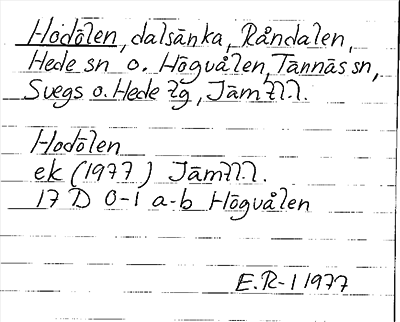 Hōdōlen, dalsänka, Råndalen,
Hede sn o. Högvålen, Tännäs sn,
Svegs o. Hede tg, Jämtl.l.
Hodōlen
ek (1977) Jämtl.l.
17 D 0-1 a-b Högvålen
E.R-l 1977